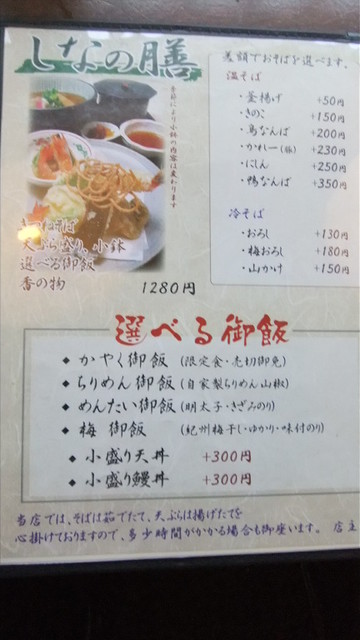 しなの膳
季節により小鉢の内容は変わります
きつねそば
天ぷら盛り、小鉢
選べる御飯
香の物
1280円
差額でおそばを選べます。
温そば
・釜揚げ +50円
・きのこ +150円
・鳥なんば +200円
・かれー(豚) +230円
・にしん +250円
・鴨なんば +350円
冷そば
・おろし +130円
・梅おろし +180円
・山かけ +150円
選べる御飯
◆ かやく御飯 (限定食・売切御免)
◆ ちりめん御飯 (自家製ちりめん山椒)
◆ めんたい御飯 (明太子・きざみのり)
◆ 梅 御飯 (紀州梅干し・ゆかり・味付のり)
◆ 小盛り天丼 +300円
◆ 小盛り鰻丼 +300円
当店では、そばは茹でたて、天ぷらは揚げたてを
心掛けておりますので、多少時間がかかる場合も御座います。 店主